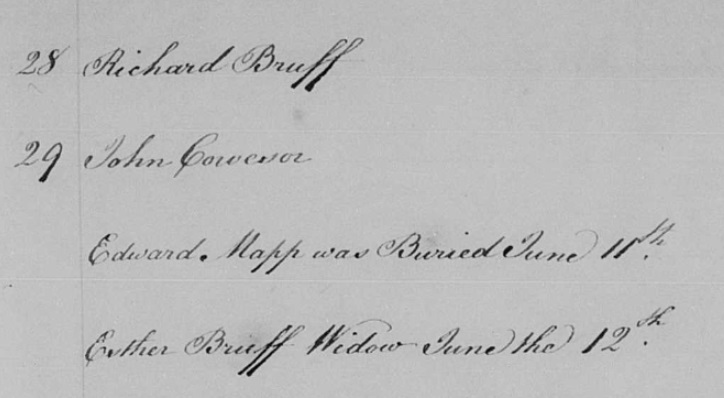 28 Richard Bruff
29 John Cowesor
Edward Mapp was Buried June 11th.
Esther Bruff Widow June the 12th.